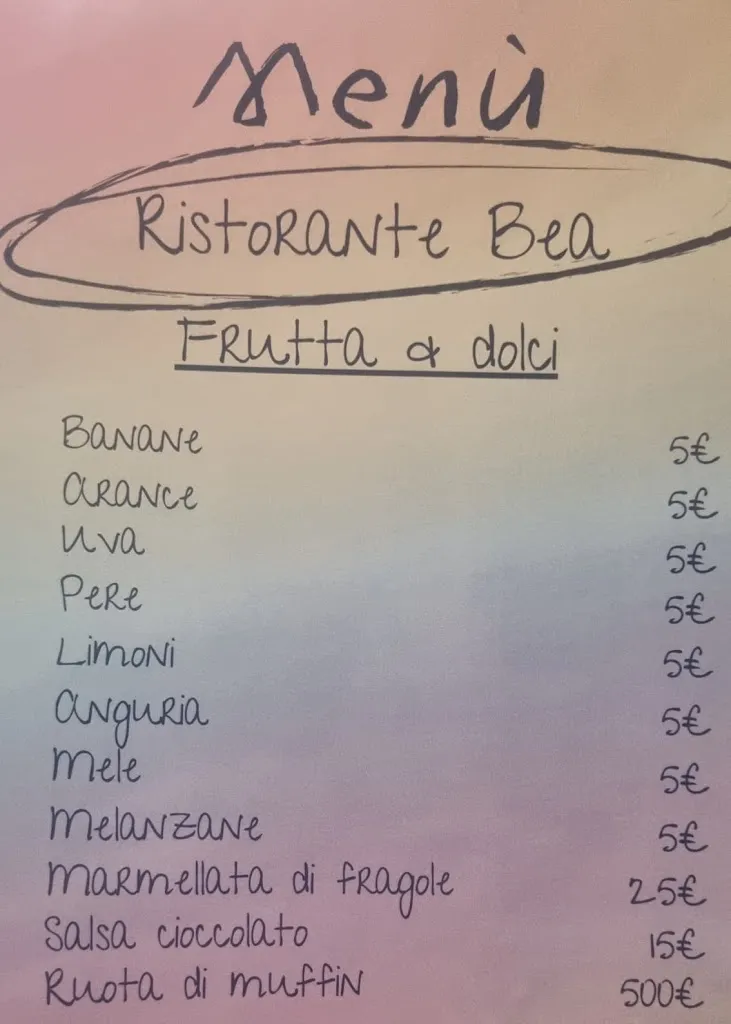 Menù
Ristorante Bea
Frutta & dolci
Banane 5€
Arance 5€
Uva 5€
Pere 5€
Limoni 5€
Anguria 5€
Mele 5€
Melanzane 5€
Marmellata di fragole 25€
Salsa cioccolato 15€
Ruota di muffin 500€